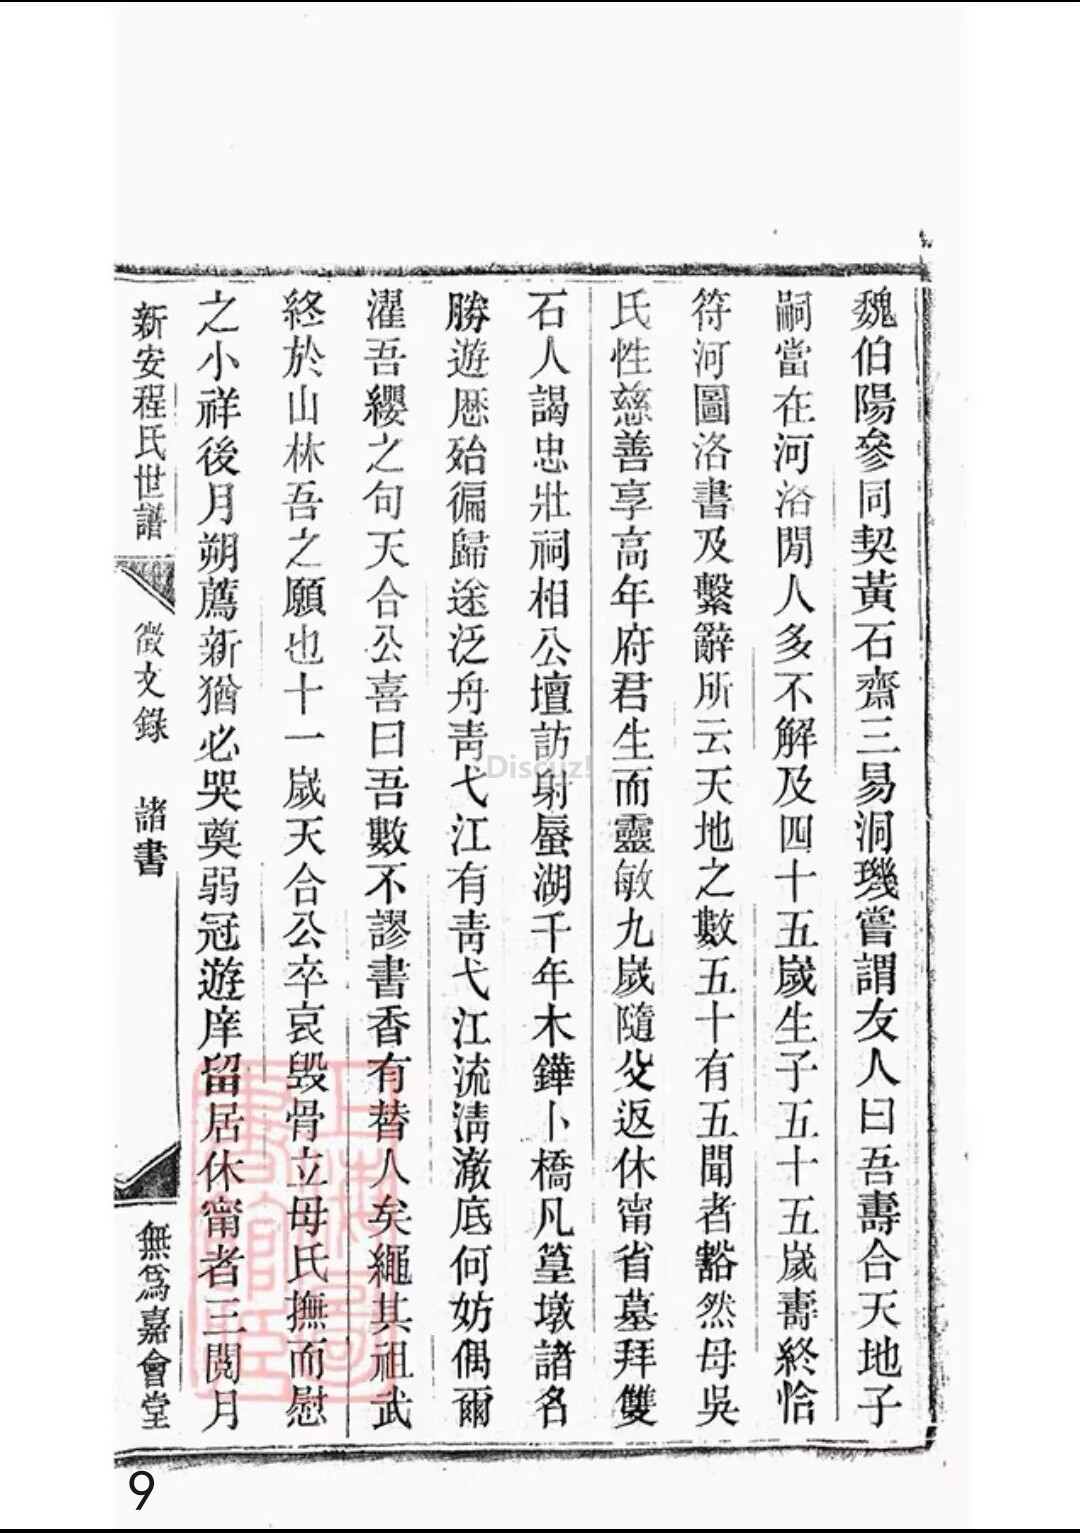 魏伯陽參同契黃石齋三易洞璣嘗謂友人曰吾壽合天地子
嗣當在河洛閒人多不解及四十五歲生子五十五歲壽終恰
符河圖洛書及繫辭所云天地之數五十有五聞者豁然母吳
氏性慈善享高年府君生而靈敏九歲隨父返休甯省墓拜雙
石人謁忠壯祠相公壇訪射蜃湖千年木鏵卜橋凡篁墩諸名
勝遊歷殆徧歸途泛舟靑弋江有靑弋江流淸澈底何妨偶爾
濯吾纓之句天合公喜曰吾數不謬書香有替人矣繩其祖武
終於山林吾之願也十一歲天合公卒哀毀骨立母氏撫而慰
之小祥後月朔薦新猶必哭奠弱冠遊庠留居休甯者三閱月
新安程氏世譜 徵文錄 諸書 無爲嘉會堂
上海圖書館藏
Discuz!
9